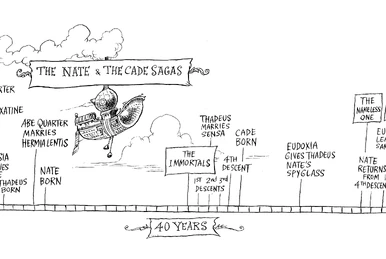 THE NATE & THE CADE SAGAS
RTER
XATINE
ABE QUARTER
MARRIES
HERMIA LENTIS
SIA
THADEUS
BORN
NATE
BORN
THE
IMMORTALS
1ST 2ND 3RD
DESCENTS
4TH
DESCENT
THADEUS
MARRIES
SENSA
CADE
BORN
EUDOXIA
GIVES THADEUS
NATE'S
SPYGLASS
THE
NAMELESS
ONE
NATE
RETURNS
FROM
4TH DESCENT
EU
LEA
SAN
40 YEARS